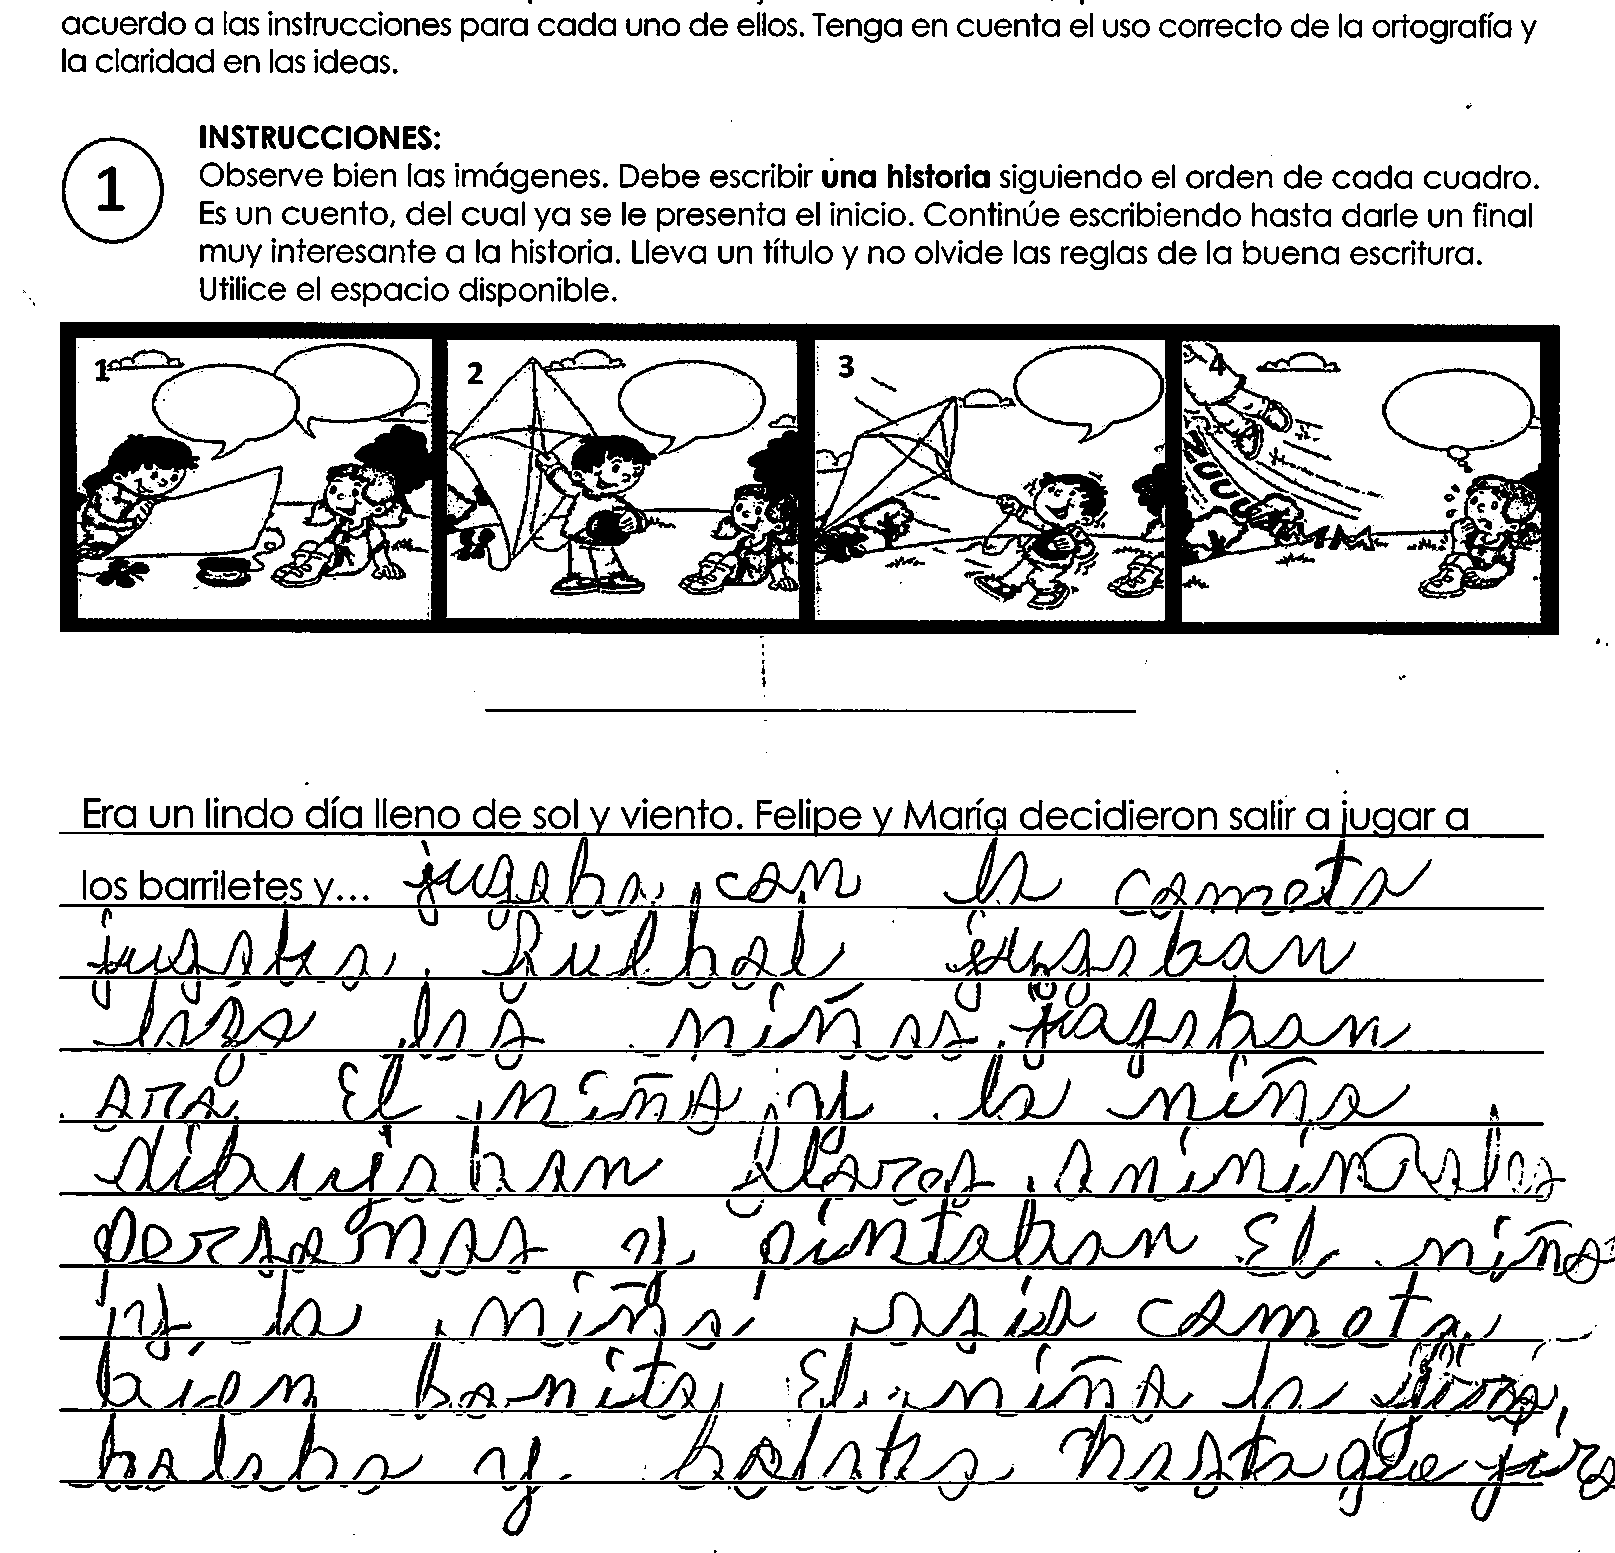 acuerdo a las instrucciones para cada uno de ellos. Tenga en cuenta el uso correcto de la ortografía y
la claridad en las ideas.
INSTRUCCIONES:
1
Observe bien las imágenes. Debe escribir una historia siguiendo el orden de cada cuadro.
Es un cuento, del cual ya se le presenta el inicio. Continúe escribiendo hasta darle un final
muy interesante a la historia. Lleva un título y no olvide las reglas de la buena escritura.
Utilice el espacio disponible.
1 2 3 4
Era un lindo día lleno de sol y viento. Felipe y María decidieron salir a jugar a
los barriletes y... jugaba con la cometa
jugaba jugaban
los niños jugaban
El niño y la niña
personas y pintaban El niño
y la niña cometa
bien bonita El niña la
halaba y halaba hasta que